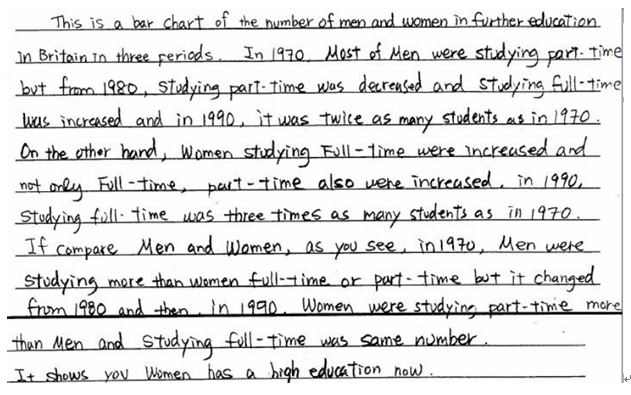 This is a bar chart of the number of men and women in further education
in Britain in three periods. In 1970, Most of Men were studying part-time
but from 1980, studying part-time was decreased and studying full-time
was increased and in 1990, it was twice as many students as in 1970.
On the other hand, Women studying Full-time were increased and
not only Full-time, part-time also were increased. in 1990,
studying full-time was three times as many students as in 1970.
If compare Men and Women, as you see, in 1970, Men were
studying more than women full-time or part-time but it changed
from 1980 and then, in 1990, Women were studying part-time more
than Men and studying full-time was same number.
It shows you Women has a high education now.